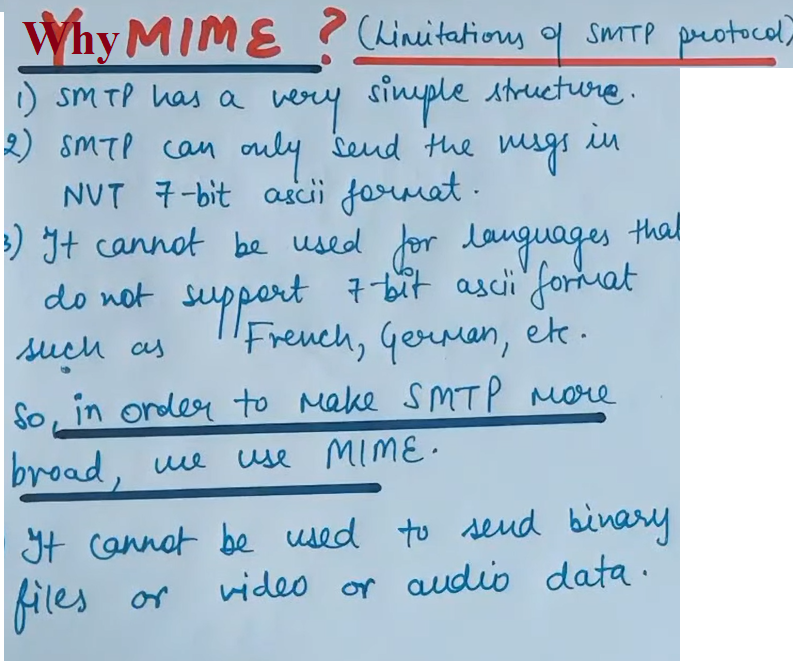 Why MIME ? (Limitations of SMTP protocol)
1) SMTP has a very simple structure.
2) SMTP can only send the msgs in
NVT 7-bit ascii format.
3) It cannot be used for languages that
do not support 7-bit ascii format
such as French, German, etc.
So, in order to make SMTP more
broad, we use MIME.
It cannot be used to send binary
files or video or audio data.